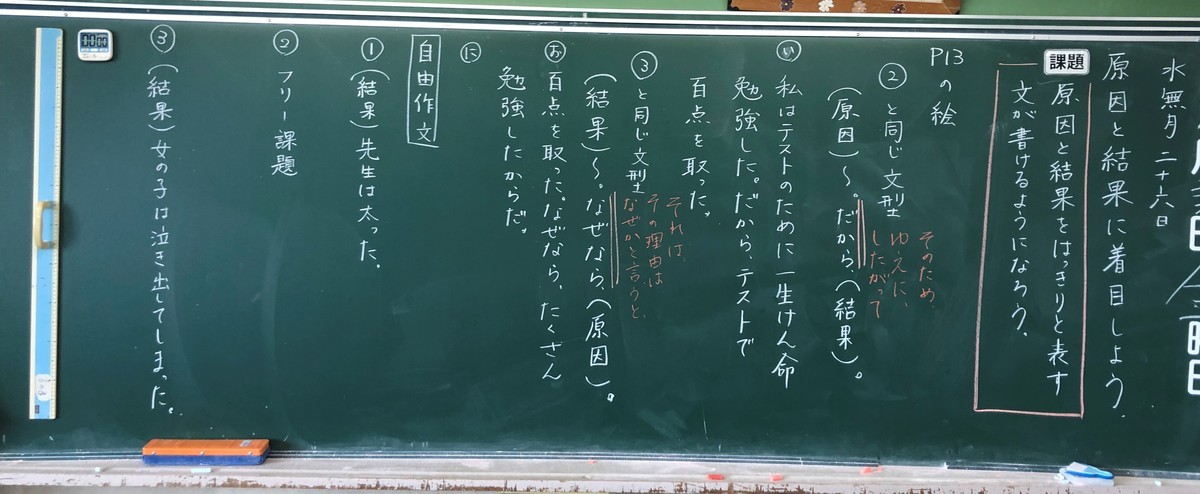 水無月 二十六日
原因と結果に着目しよう.
課題
原因と結果をはっきりと表す
文が書けるようになろう.
P13の絵
②と同じ文型
(原因)～。だから、(結果)。
そのため
ゆえに、
したがって
い 私はテストのために一生けん命
勉強した。だから、テストで
百点を取った。
③と同じ文型
(結果)～。なぜなら、(原因)。
それは
その理由は
なぜかと言うと、
お 百点を取った。なぜなら、たくさん
勉強したからだ。
に
自由作文
①(結果)先生は太った。
② フリー課題
③(結果)女の子は泣き出してしまった。